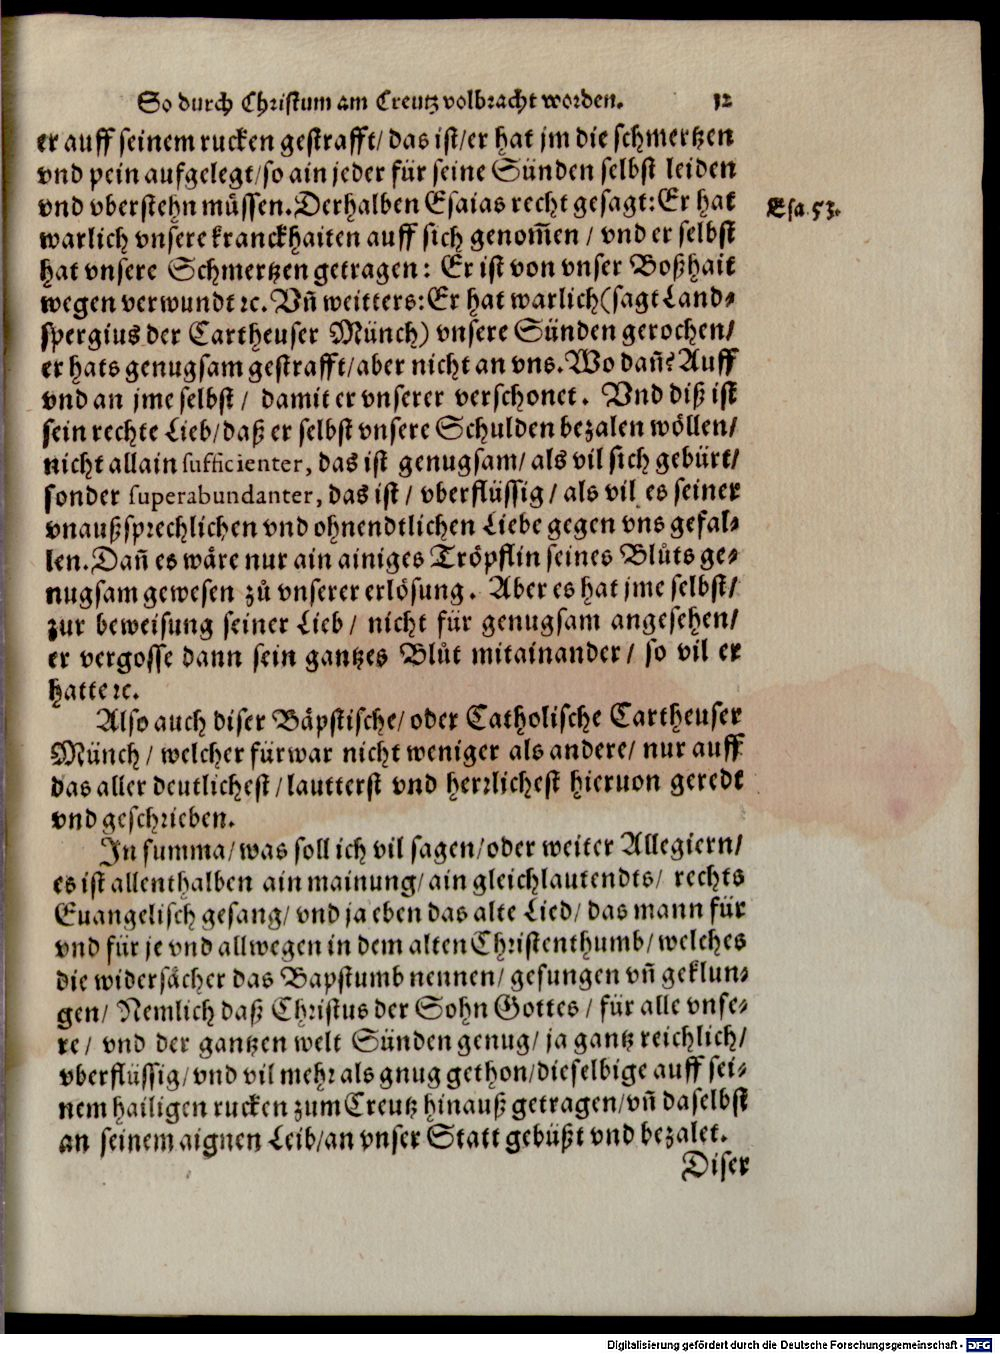 So durch Christum am Creutz volbracht worden. 12
er auff seinem rucken gestrafft/ das ist/ er hat jm die schmertzen
vnd pein aufgelegt/ so ain jeder für seine Sünden selbst leiden
vnd vberstehn müssen. Derhalben Esaias recht gesagt: Er hat
Esa. 53.
warlich vnsere kranckhaiten auff sich genom̄en / vnd er selbst
hat vnsere Schmertzen getragen: Er ist von vnser Boßhait
wegen verwundt ꝛc. Vñ weitters: Er hat warlich (sagt Land⸗
spergius der Cartheuser Münch) vnsere Sünden gerochen/
er hats genugsam gestrafft/ aber nicht an vns. Wo dañ? Auff
vnd an jme selbst / damit er vnserer verschonet. Vnd diß ist
sein rechte Lieb/ daß er selbst vnsere Schulden bezalen wöllen/
nicht allain sufficienter, das ist genugsam/ als vil sich gebürt/
sonder superabundanter, das ist / vberflüssig / als vil es seiner
vnaußsprechlichen vnd ohnendtlichen Liebe gegen vns gefal⸗
len. Dañ es wäre nur ain ainiges Tröpflin seines Blůts ge⸗
nugsam gewesen zů vnserer erlösung. Aber es hat jme selbst/
zur beweisung seiner Lieb / nicht für genugsam angesehen/
er vergosse dann sein gantzes Blůt mitainander / so vil er
hatte ꝛc.
Also auch diser Bäpstische/ oder Catholische Cartheuser
Münch / welcher fürwar nicht weniger als andere/ nur auff
das aller deutlichest / lautterst vnd herrlichest hieruon geredt
vnd geschrieben.
In summa/ was soll ich vil sagen/ oder weiter Allegiern/
es ist allenthalben ain mainung/ ain gleichlautendts/ rechts
Euangelisch gesang/ vnd ja eben das alte Lied/ das mann für
vnd für je vnd allwegen in dem alten Christenthumb/ welches
die widersächer das Bapstumb nennen/ gesungen vñ geklun⸗
gen/ Nemlich daß Christus der Sohn Gottes / für alle vnse⸗
re / vnd der gantzen welt Sünden genug/ ja gantz reichlich/
vberflüssig/ vnd vil mehr als gnug gethon/ dieselbige auff sei⸗
nem hailigen rucken zum Creutz hinauß getragen/ vñ daselbst
an seinem aignen Leib/ an vnser Statt gebüßt vnd bezalet.
Diser
Digitalisierung gefördert durch die Deutsche Forschungsgemeinschaft - DFG